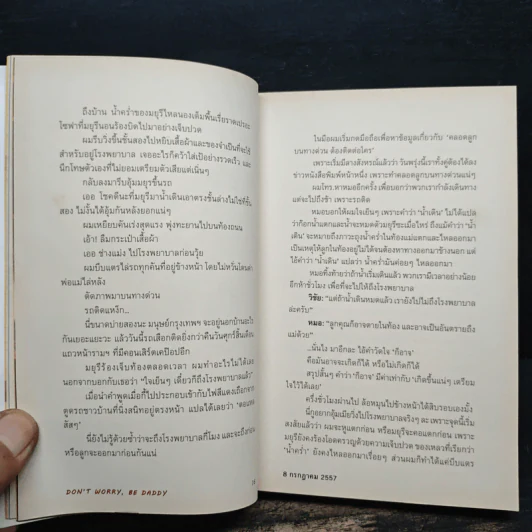 ถึงบ้าน น้ำคร่ำของมยุรีไหลนองเต็มพื้นเรี่ยราดเปรอะ
โซฟาที่มยุรีนอนร้องบิดไปมาอย่างเจ็บปวด
ผมรีบวิ่งขึ้นชั้นสองไปหยิบเสื้อผ้าและของจำเป็นที่จะใช้
สำหรับอยู่โรงพยาบาล เจออะไรก็คว้าใส่เป้อย่างรวดเร็ว และ
นึกโทษตัวเองที่ไม่ยอมเตรียมตัวเสียแต่เนิ่นๆ
กลับลงมารีบอุ้มมยุรีขึ้นรถ
เออ โชคดีนะที่มยุรีมาน้ำเดินเอาตรงชั้นล่างไม่ใช่ที่ชั้น
สอง ไม่งั้นได้อุ้มกันหลังยอกแน่ๆ
ผมเหยียบคันเร่งสุดแรง พุ่งทะยานไปบนท้องถนน
เอ้า! ลืมกระเป๋าเสื้อผ้า
เออ ช่างแม่ง ไปโรงพยาบาลก่อนวุ้ย
ผมบีบแตรใส่รถทุกคันที่อยู่ข้างหน้า โดยไม่หวั่นโดนด่า
พ่อแม่ไล่หลัง
ตัดภาพมาบนทางด่วน
รถติดแหง็ก..
นี่ขนาดบ่ายสองนะ มนุษย์กรุงเทพฯ จะอยู่นอกบ้านอะไร
กันเยอะแยะวะ แล้ววันนี้รถเสือกติดยิ่งกว่าคืนวันศุกร์สิ้นเดือน
แถวหน้ารามฯ ที่มีคอนเสิร์ตเคป๊อปอีก
มยุรีร้องเจ็บท้องตลอดเวลา ผมทำอะไรไม่ได้เลย
นอกจากบอกกับเธอว่า "ใจเย็นๆ เดี๋ยวก็ถึงโรงพยาบาลแล้ว"
เมื่อนำคำพูดเมื่อกี้ไปประกอบเข้ากับไฟสีแดงเถือกจาก
ตูดรถชาวบ้านที่นิ่งสนิทอยู่ตรงหน้า แปลได้เลยว่า
นี่ยังไม่รู้ด้วยซ้ำว่าจะถึงโรงพยาบาลกี่โมง และจะถึงก่อน
หรือลูกจะออกมาก่อนกันแน่
DON'T WORRY, BE DADDY
ในมือผมเริ่มกดมือถือเพื่อหาข้อมูลเกี่ยวกับ 'คลอดลูก
บนทางด่วน ต้องติดต่อใคร'
เพราะเริ่มมีลางสังหรณ์แล้วว่า วันพรุ่งนี้เราทั้งคู่ต้องได้ลง
ข่าวหนังสือพิมพ์หน้าหนึ่ง เพราะทำคลอดลูกบนทางด่วนแน่ๆ
ผมโทร.หาหมออีกครั้ง เพื่อบอกว่าพวกเรากำลังเดินทาง
แต่จะไปถึงช้า เพราะรถติด
หมอบอกให้ผมใจเย็นๆ เพราะคำว่า 'น้ำเดิน' ไม่ได้แปล
ว่าก๊อกน้ำแตกและน้ำจะหมดตัวมยุรีซะเมื่อไหร่ ถึงแม้คำว่า 'น้ำ
เดิน' จะหมายถึงภาวะถุงน้ำคร่ำในท้องแม่แตกและไหลออกมา
เป็นเหตุให้ลูกในท้องอยู่ไม่ได้จนต้องหาทางทางออกมาข้างนอก แต่ก็
ใช้คำว่า 'น้ำเดิน' แปลว่า น้ำคร่ำมันค่อยๆ ไหลออกมา
หมอทิ้งท้ายว่าถ้าน้ำเริ่มเดินแล้ว พวกเรามีเวลาอย่างน้อย
อีกห้าชั่วโมง เพื่อที่จะไปให้ถึงโรงพยาบาล
วิชัย: "แต่ถ้าน้ำเดินหมดแล้ว เรายังไปไม่ถึงโรงพยาบาล
ล่ะครับ"
หมอ: "ลูกคุณก็อาจตายในท้อง และอาจเป็นอันตรายถึง
แม่ด้วย"
..นั่นไง มาอีกละ ไอ้คำวัดใจ 'ก็อาจ'
คือมันอาจจะเกิดก็ได้ หรือไม่เกิดก็ได้
สรุปสั้นๆ คำว่า 'ก็อาจ' มีค่าเท่ากับ 'เกิดขึ้นแน่ๆ เตรียม
ใจไว้ได้เลย'
ครึ่งชั่วโมงผ่านไป ล้อหมุนไปข้างหน้าได้สิบรอบเองมั้ง
นี่กูอยากอุ้มเมียวิ่งไปโรงพยาบาลจริงๆ ละ เพราะจุดนี้เริ่ม
สงสัยแล้วว่า ผมจะหูแตกก่อน หรือมยุรีจะคอแตกก่อน เพราะ
มยุรียังคงร้องโอดครวญด้วยความเจ็บปวด ของเหลวที่เรียกว่า
'น้ำคร่ำ' ยังคงไหลออกมาเรื่อยๆ ส่วนผมก็ทำได้แค่บีบแตร
8 กรกฎาคม 2557